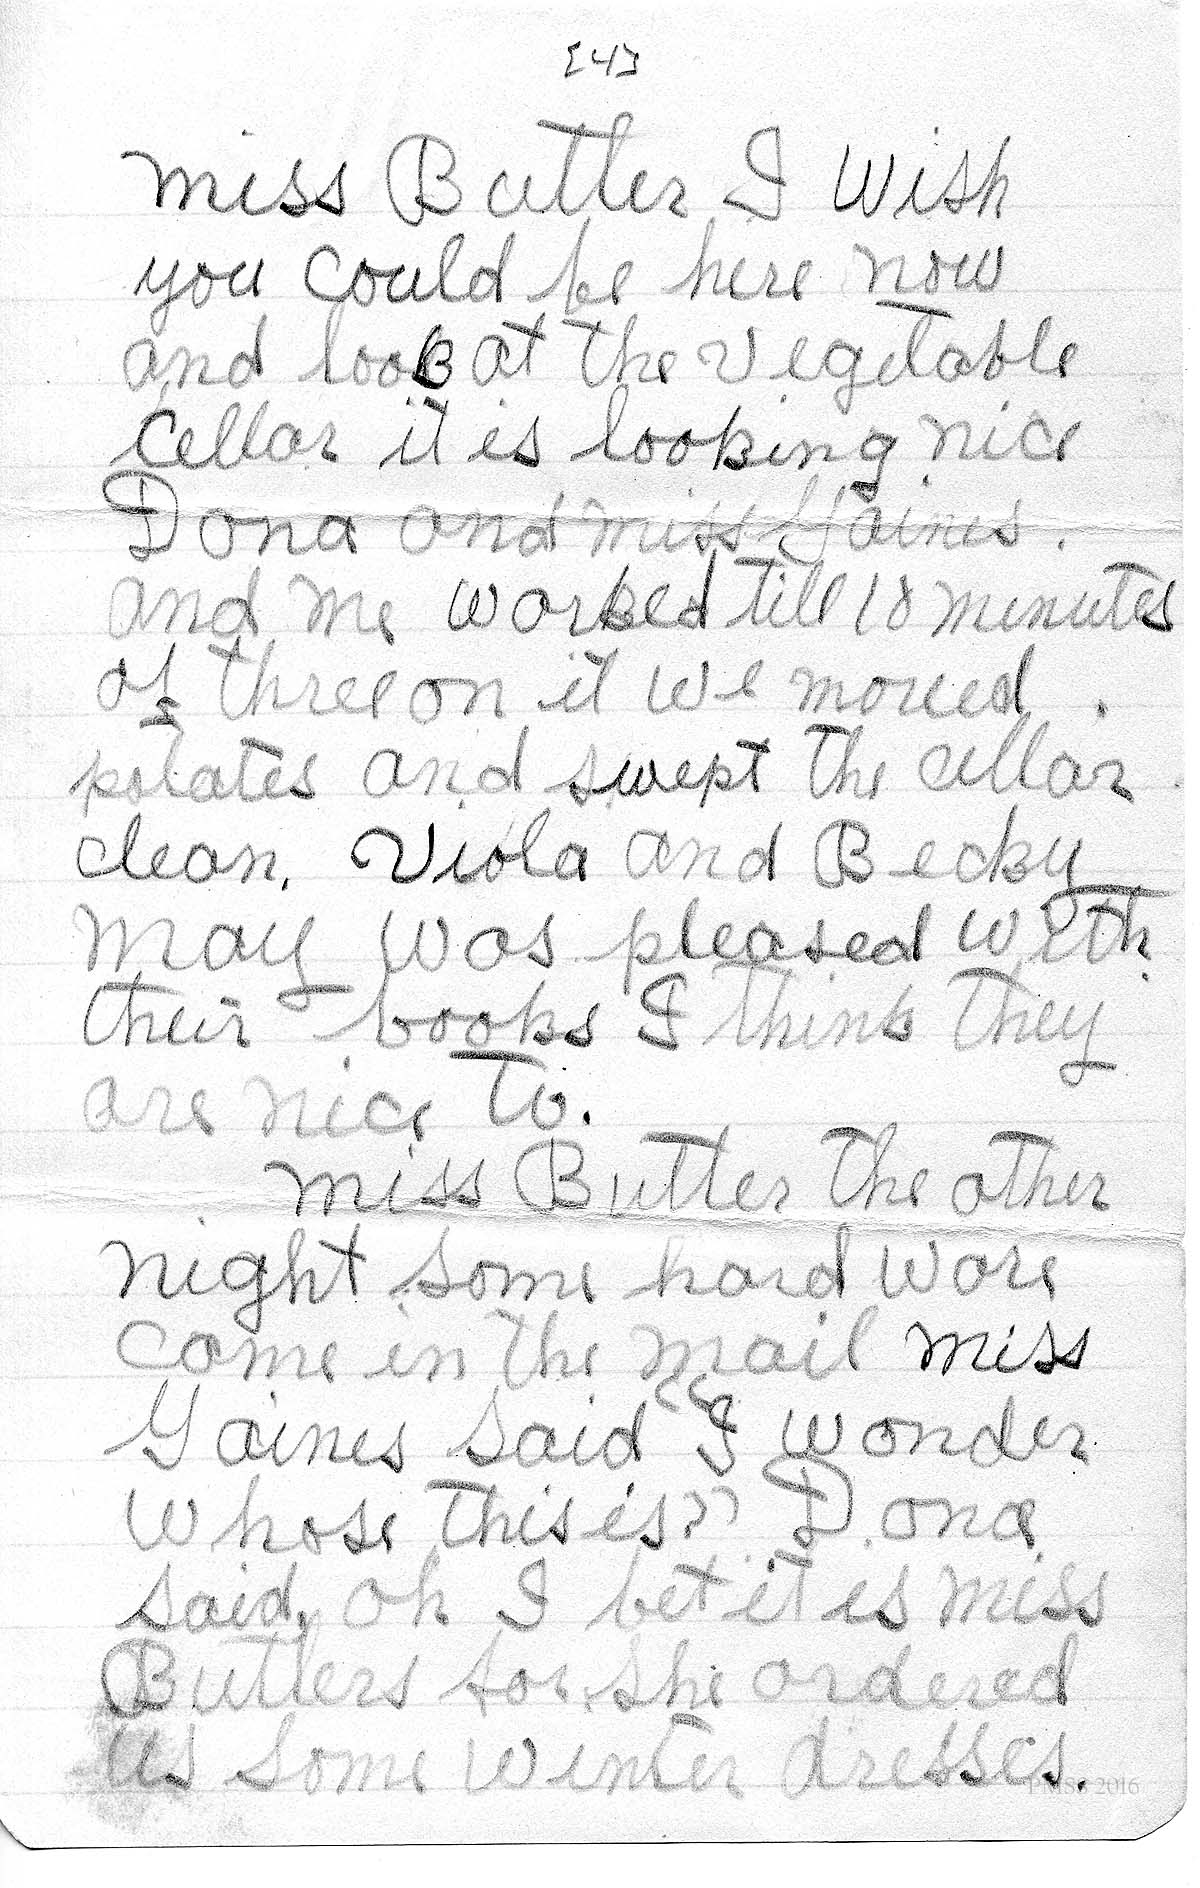 [4]
Miss Butler I Wish
you could be here now
and look at the vegetable
cellar it is looking nice
Dona and miss Gaines.
and me worked till 10 minutes
of three on it we moved
potates and swept the cellar
clean. Viola and Becky
May was pleased with
their books I think they
are nice to.
Miss Butler the other
night some hard ware
come in the mail miss
Gaines said "I wonder
whose this is?" Dona
said, oh I bet it is miss
Butlers for she ordered
us some winter dresses.
PMSS 2016